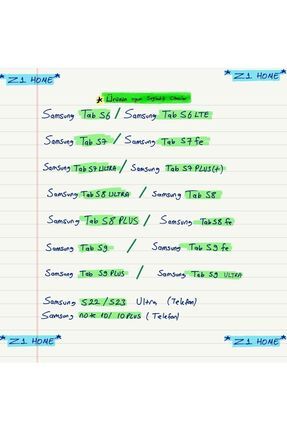 Z1 HOME Z1 HOME
* Ürünün uyumlu
Samsung Tab S6 / Samsung Tab S6 LTE
Samsung Tab S7 / Samsung Tab S7 fe
Samsung Tab S7 ULTRA / Samsung Tab S7 PLUS(+)
Samsung Tab S8 ULTRA / Samsung Tab S8
Samsung Tab S8 PLUS / Samsung Tab S8 fe
Samsung Tab S9 / Samsung Tab S9 fe
Samsung Tab S9 PLUS / Samsung Tab S9 ULTRA
Samsung S22 / S23 Ultra (Telefon)
Samsung note 10 / 10 PLUS (Telefon)
Z1 HOME Z1 HOME